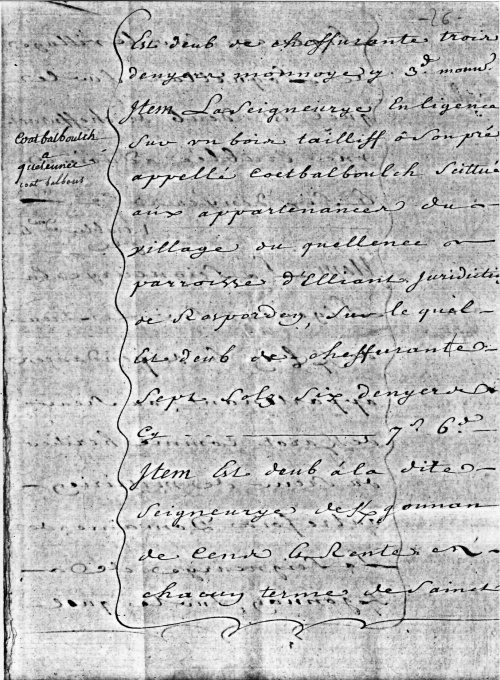 26
Est deub de cheffrante trois
denyers monnoye cy 3d monn.
Coetbalboulch
a
quelennec
coat balbous
Item La Seigneurye En ligence
Sur un bois tailliff & son pré
appellé Coetbalboulch Scittué
aux appartenances du
village du quellenec
parroisse d'Elliant Juridiction
de Rosporden, Sur le quel
Est deub de cheffrante
Sept Solz Six denyers
Cy 7s 6d
Item Est deub à la dite
Seigneurye de Kgounan
de Cens & Rente en
chacun terme de Sainct